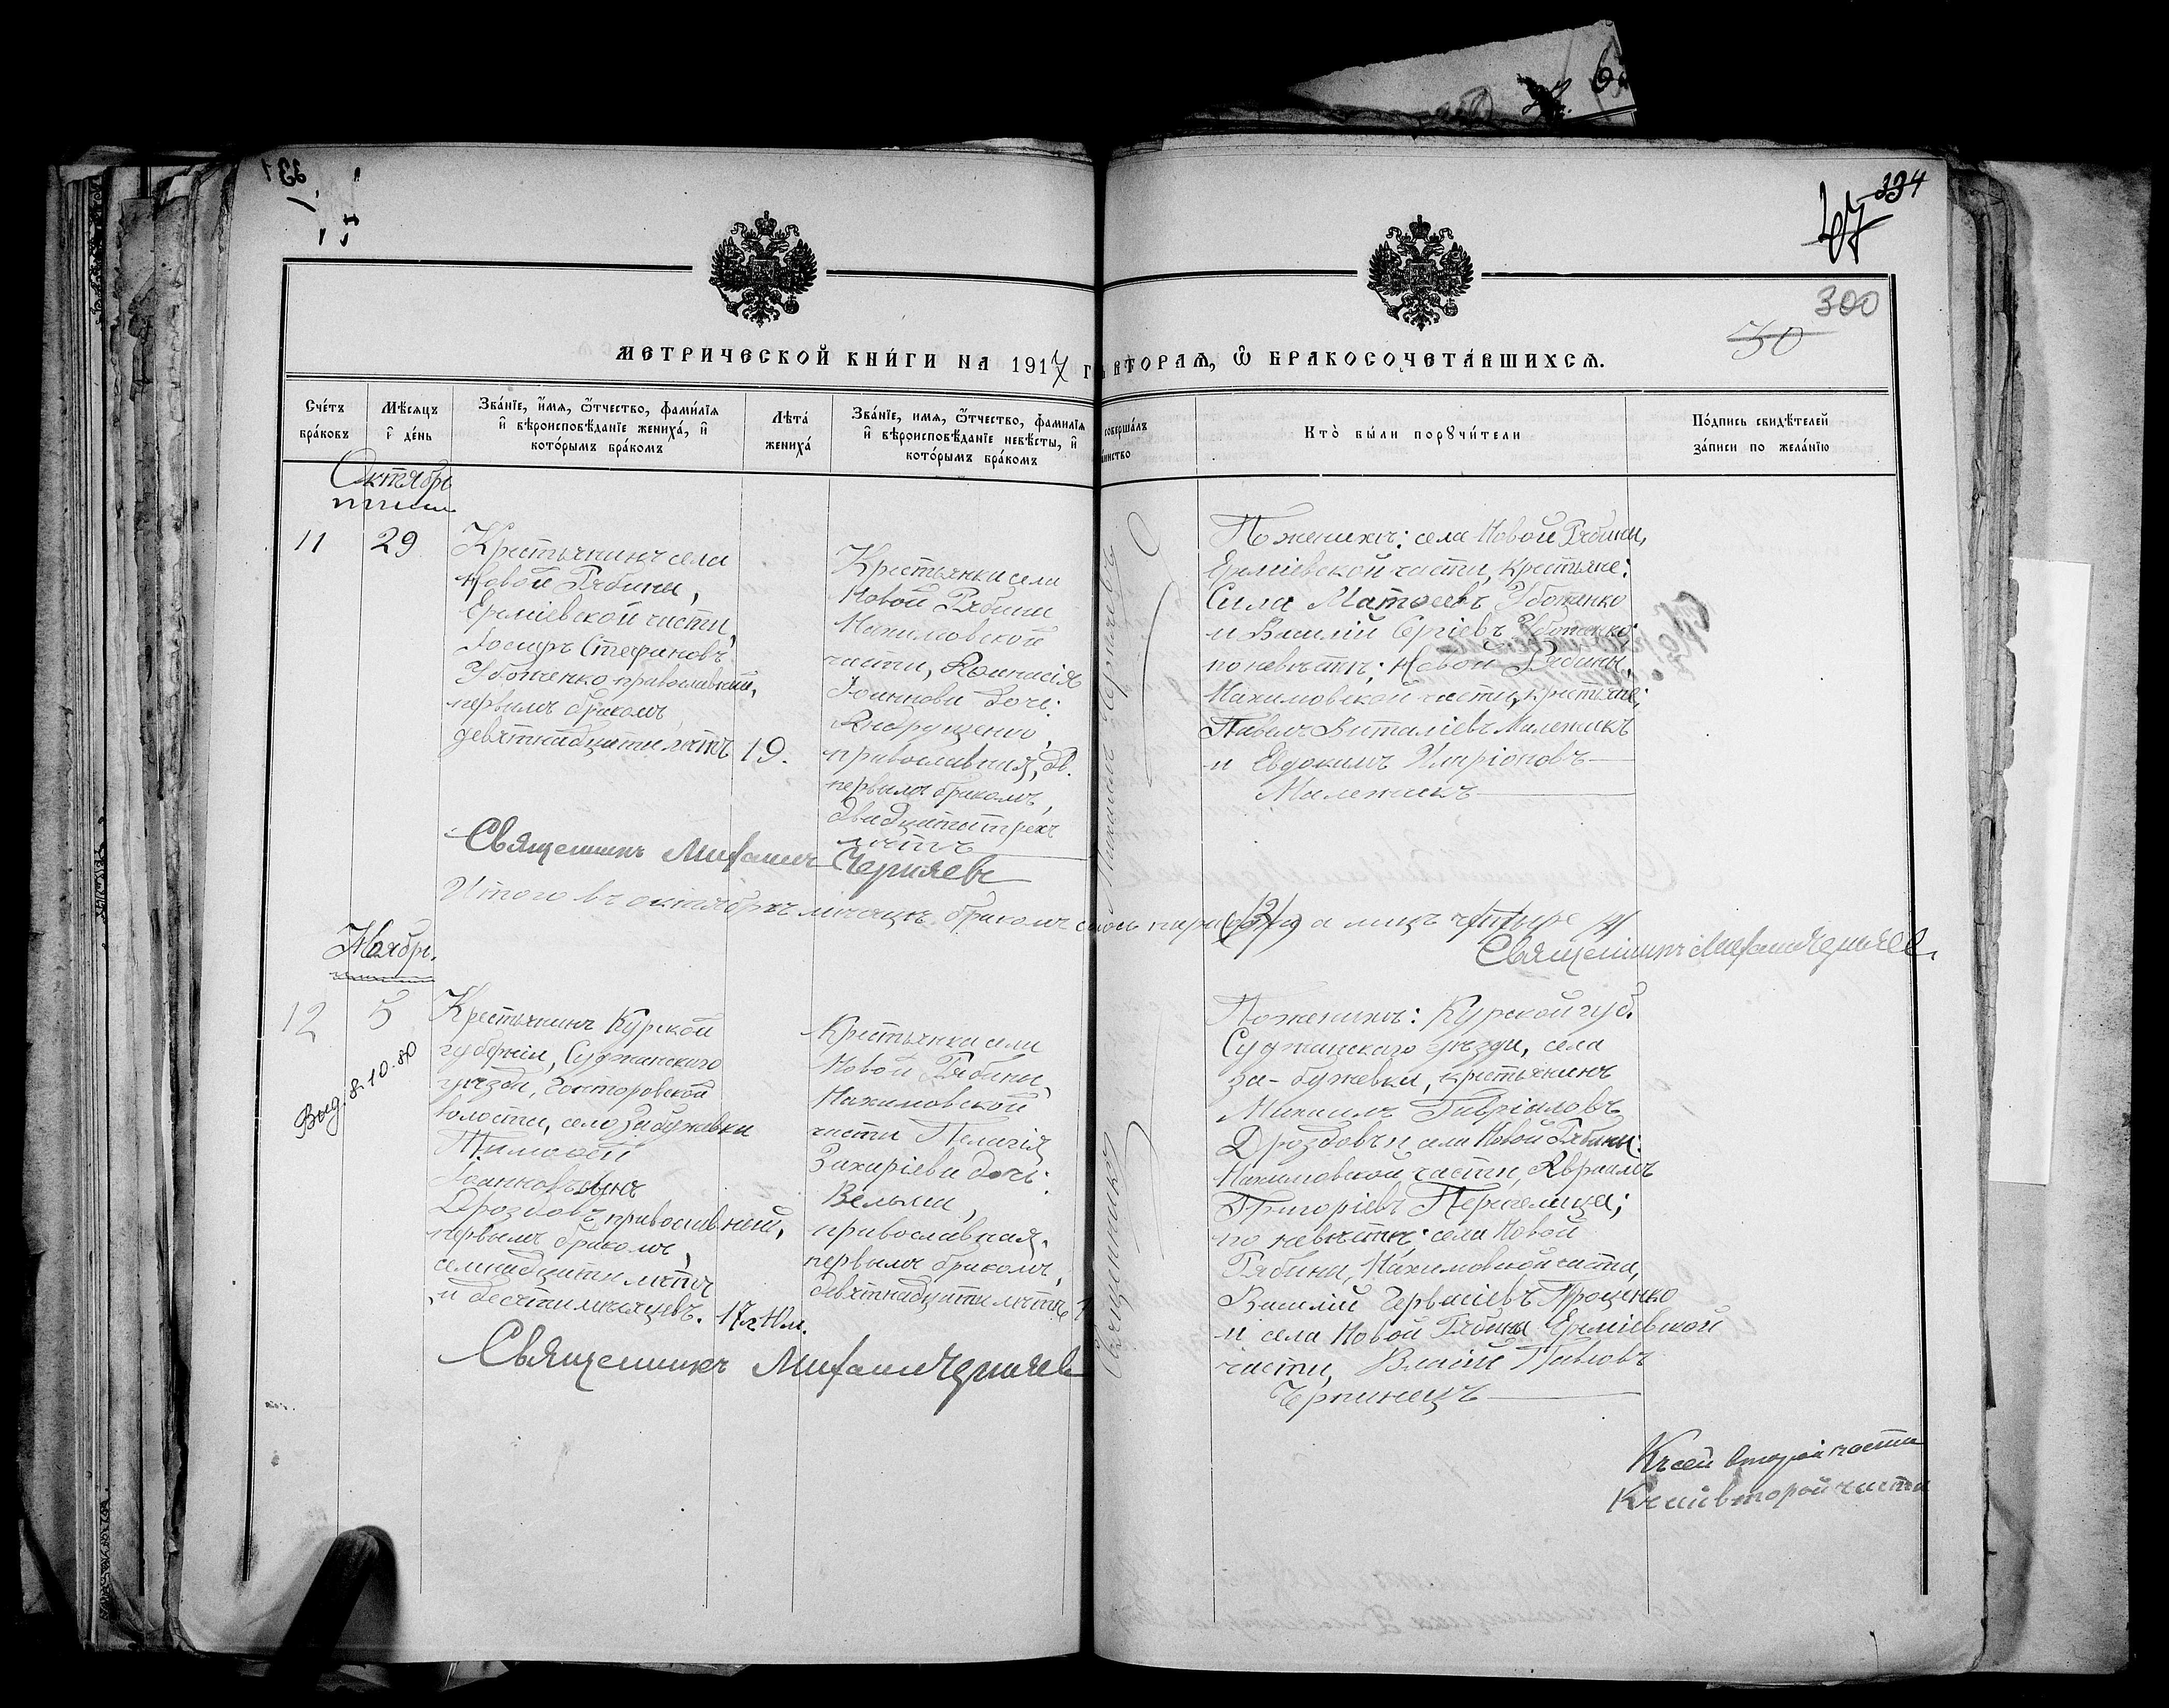 334
47
300
30
МЕТРИЧЕСКОЙ КНИ́ГИ НА 1917 г
ВТОРАѦ, Ѿ БРАКОСОЧЕТА́ВШИХСѦ.
Сче́тъ бра́ковъ
Мѣ́сяцъ и҆ де́нь
Зва́нїе, и҆́мѧ, ѻ҆́тчество, фами́лїѧ
и҆ вѣроисповѣ́данїе жениха́, и҆
кото́рымъ бра́комъ
Лѣта́ жениха́
Зва́нїе, имѧ, ѻ҆́тчество, фамилїѧ
и҆ вѣроисповѣ́данїе невѣ́сты, и҆
кото́рымъ бра́комъ
соверша́лъ
Кто̀ бы́ли порꙋчи́тели
По́дпись свидѣ́телей
за́писи по жела́нїю
Октябрь
11
29
Крестьянинъ села
Новой Рябины,
Ерміевской части,
Іосифъ Стефановъ
Убоженко православный,
первымъ бракомъ
девятнадцати лѣтъ
19.
Крестьянка села
Новой Рябины
Нахимовской
части, Аѳанасія
Іоаннова дочь
Андрущенко,
православная,
первымъ бракомъ,
двадцати трехъ
лѣтъ
Священникъ Михаилъ Черняевъ
По женихѣ: села Новой Рябины,
Ерміевской части, крестьяне:
Сила Матѳеевъ Убоженко
и Василій Сергіевъ Убоженко;
по невѣстѣ: Новой Рябины,
Нахимовской части, крестьяне:
Павелъ Виталіевъ Маленикъ
и Евдокимъ Иларіоновъ
Маленикъ
Итого въ октябрѣ мѣсяцѣ браком паръ (2) а лицъ четыре
Священникъ Михаилъ Черняевъ
Ноябрь.
12
5
Выд. 8.10.80
Крестьянинъ Курской
губерніи, Суджанскаго
уѣзда,
волости, село Забужевки
Тимоѳей
Іоанновъ сынъ
Дроздовъ православный,
первымъ бракомъ,
семнадцати лѣтъ
и десяти мѣсяцевъ.
17 л 10 м.
Крестьянка села
Новой Рябины,
Нахимовской
части Пелагія
Захаріева дочь
Вельма,
православная,
первымъ бракомъ,
девятнадцати лѣтъ
1
Священникъ Михаилъ Черняевъ
Священникъ Михаилъ Черняевъ
По женихѣ: Курской губ.
Суджанскаго уѣзда, села
За-бужевки, крестьянинъ
Михаилъ Гавріиловъ
Дроздовъ и села Новой Рябины
Нахимовской части, Авраамъ
Григоріевъ Перепелица;
по невѣстѣ: села Новой
Рябины, Нахимовской части,
Василій Гервасіевъ Проценко
и села Новой Рябины Ерміевской
части, Власій Павловъ
Черпинецъ
Къ сей второй части
Къ сей второй части